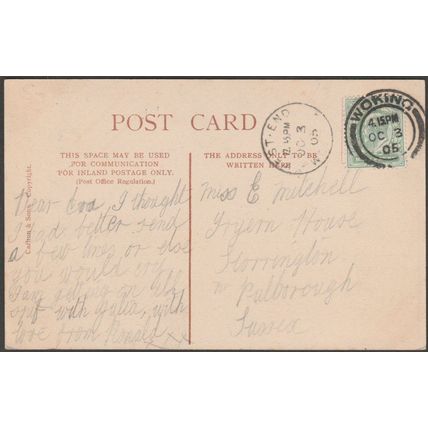 POST CARD
THIS SPACE MAY BE USED
FOR COMMUNICATION
FOR INLAND POSTAGE ONLY.
(Post Office Regulation.)
THE ADDRESS ONLY TO BE
WRITTEN HERE
Carlton & Sons, Copyright.
Dear Eva, I thought
I had better send
a few lines or else
you would cry
I am getting on
with love from Ronald xxx
Miss E Mitchell
Fryern House
Storrington
Nr Pulborough
Sussex
ST-END
12.15PM
OC 3
05
WOKING
4.15PM
OC 3
05